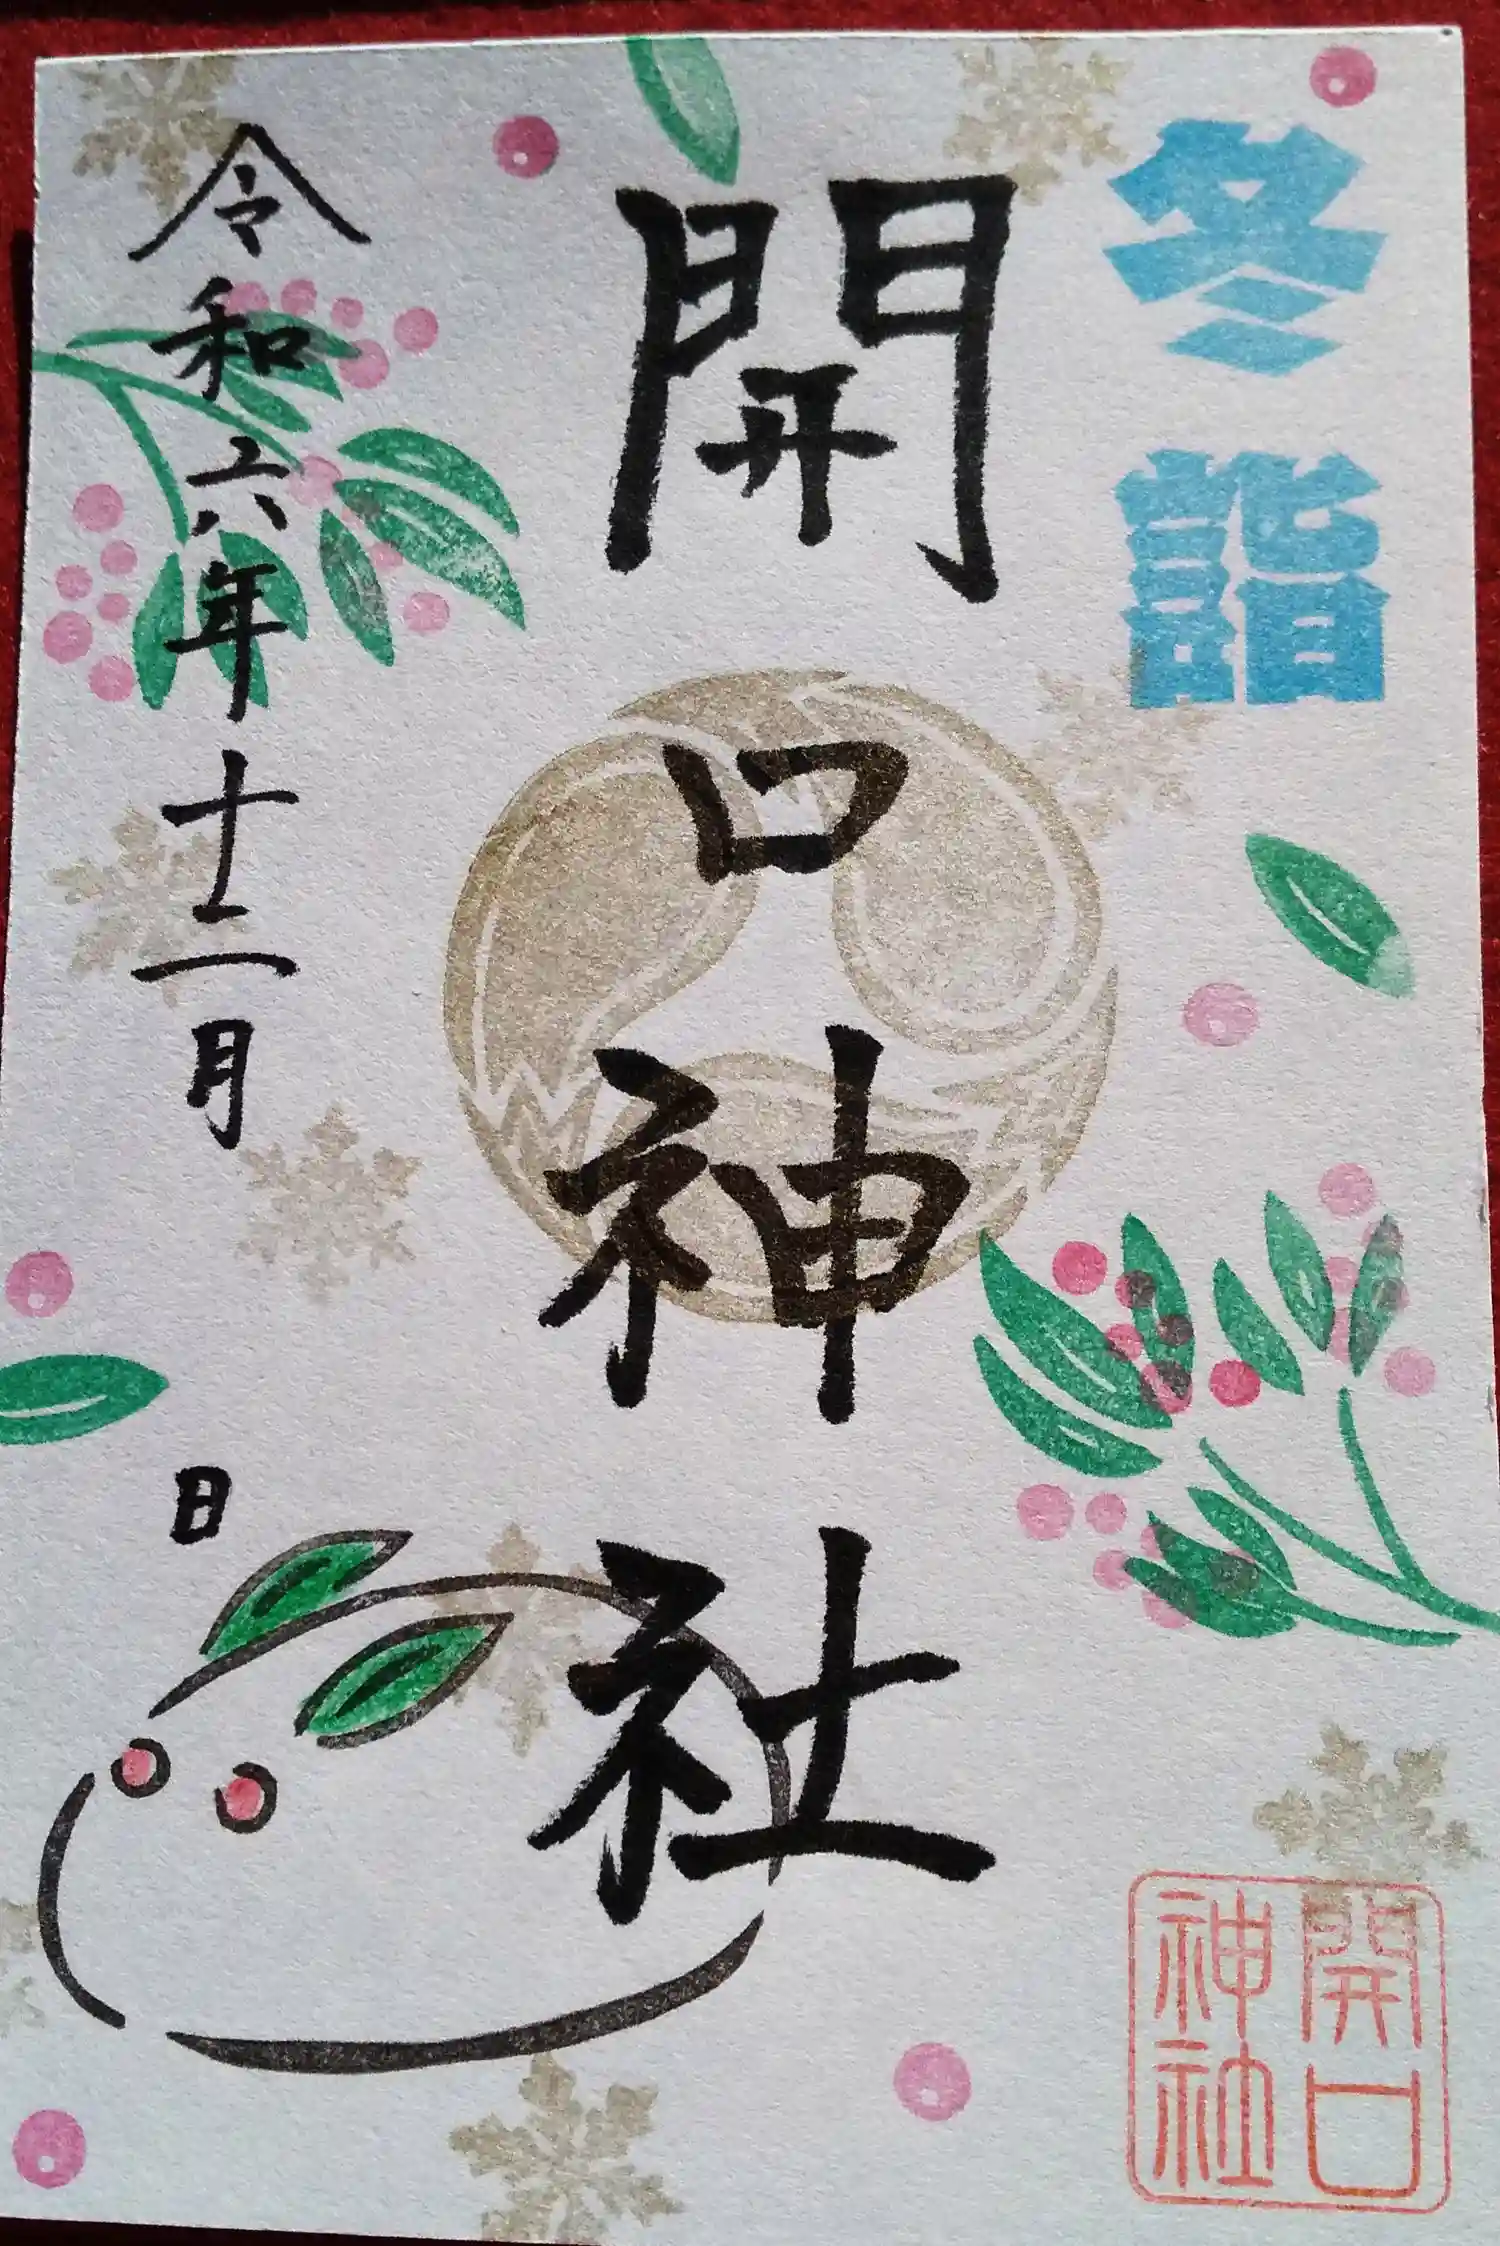 冬詣
開口神社
令和六年十二月 日
開口
神社